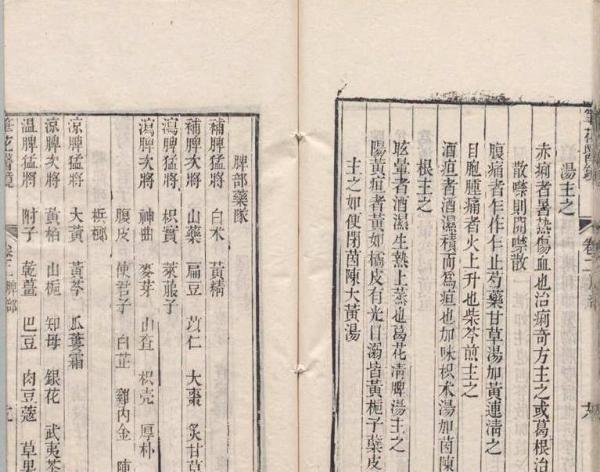 湯主之
赤痢者暑熱傷血也治痢奇方主之或葛根治
散噤則開噤散
腹痛者乍作乍止芍藥甘草湯加黃連清之
目胞腫痛者火上升也柴芩煎主之
酒疸者酒濕積而為疸也加味枳朮湯加茵陳
根主之
眩暈者酒濕生熱上蒸也葛花清脾湯主之
陽黃疸者黃如橘皮有光目溺皆黃梔子蘗皮
主之如便閉茵陳大黃湯
脾部藥隊
補脾猛將 白朮 黃精
補脾次將 山藥 扁豆 苡仁 大棗 炙甘草
瀉脾猛將 枳實 萊菔子
瀉脾次將 神曲 麥芽 山查 枳壳 厚朴
腹皮 使君子 白芷 雞內金 陳
梹榔
涼脾猛將 大黃 黃芩 瓜蔞霜
涼脾次將 黃柏 山梔 知母 銀花 武夷茶
溫脾猛將 附子 乾薑 巴豆 肉豆蔻 草果
筆花醫鏡 卷二 脾部